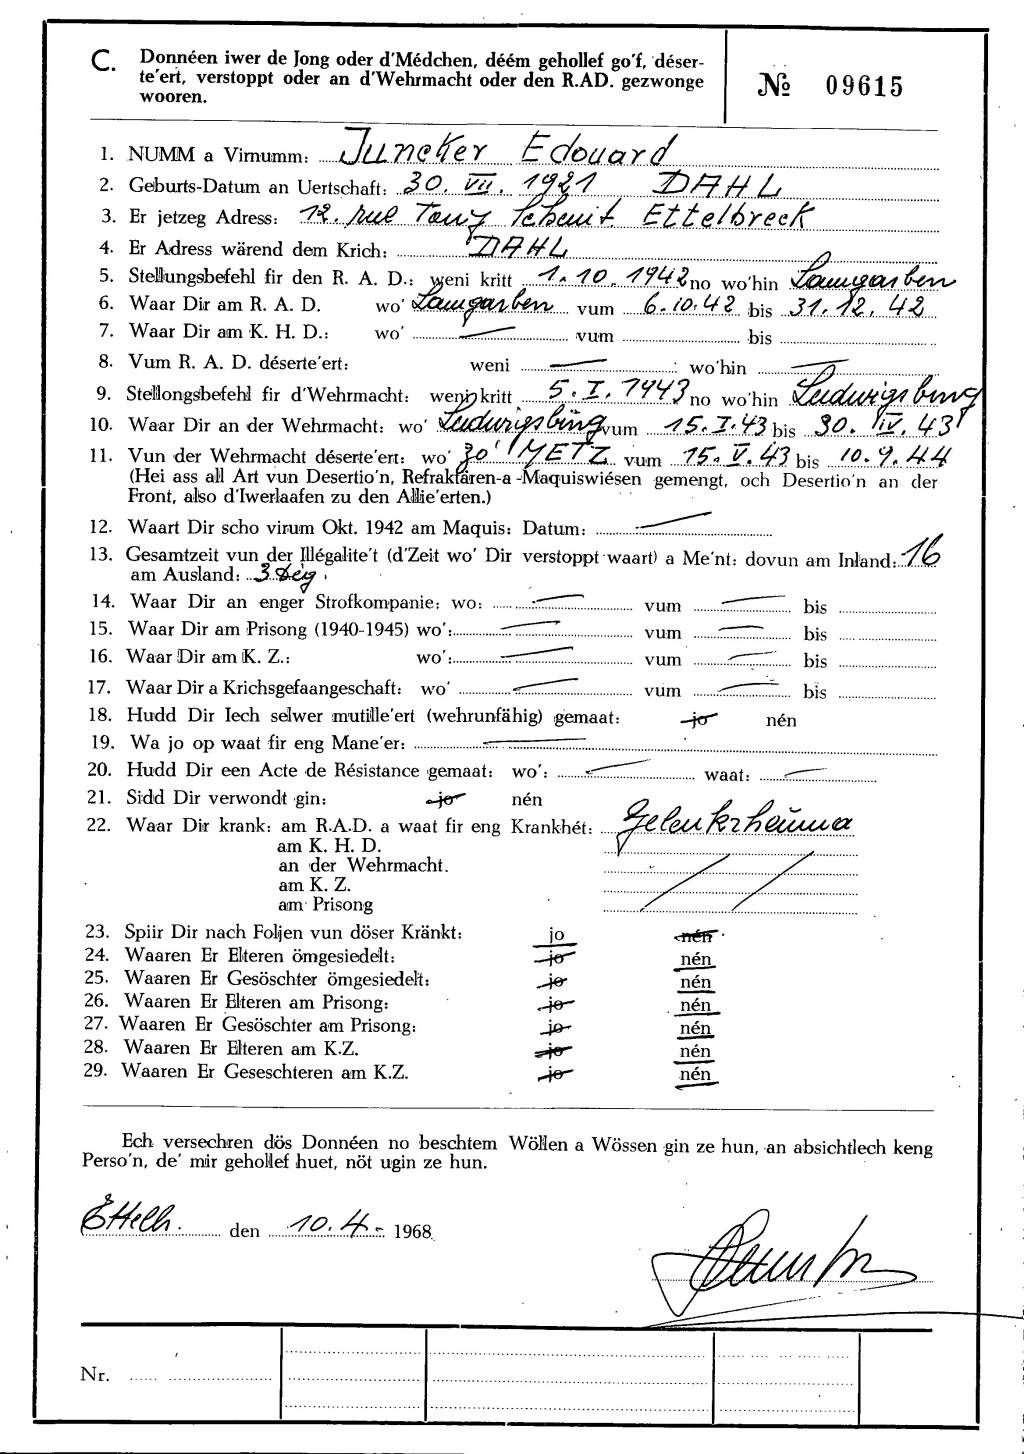 C. Donnéen iwer de Jong oder d'Médchen, déém gehollef go'f, déser-
te'ert, verstoppt oder an d'Wehrmacht oder den R.AD. gezwonge
wooren.
№ 09615
1. NUMM a Virnumm: Juncker Edouard
2. Geburts-Datum an Uertschaft: 30. VII. 1921 DAHL
3. Er jetzeg Adress: 12. rue Tony Schmit. Ettelbreck
4. Er Adress wärend dem Krich: DAHL
5. Stellungsbefehl fir den R. A. D.: weni kritt 1.10.1942 no wo'hin Lamgarben
6. Waar Dir am R. A. D. wo' Lamgarben vum 6.10.42 bis 31.12.42
7. Waar Dir am K. H. D.: wo' vum bis
8. Vum R. A. D. déserte'ert: weni wo'hin
9. Stellongsbefehl fir d'Wehrmacht: weni kritt 5. I. 1943 no wo'hin Ludwigsburg
10. Waar Dir an der Wehrmacht: wo' Ludwigsburg vum 15.I.43 bis 30. IV. 43
11. Vun der Wehrmacht déserte'ert: wo' zo' METZ vum 15. V. 43 bis 10.9.44
(Hei ass all Art vun Desertio'n, Refraktären-a-Maquiswiésen gemengt, och Desertio'n an der
Front, also d'Iwerlaafen zu den Allie'erten.)
12. Waart Dir scho virum Okt. 1942 am Maquis: Datum:
13. Gesamtzeit vun der Illégalite't (d'Zeit wo' Dir verstoppt waart) a Me'nt: dovun am Inland: 16
am Ausland: 3 Deig
14. Waar Dir an enger Strofkompanie: wo: vum bis
15. Waar Dir am Prisong (1940-1945) wo': vum bis
16. Waar Dir am K. Z.: wo': vum bis
17. Waar Dir a Krichsgefaangeschaft: wo' vum bis
18. Hudd Dir Iech selwer mutille'ert (wehrunfähig) gemaat: jo nén
19. Wa jo op waat fir eng Mane'er:
20. Hudd Dir een Acte de Résistance gemaat: wo': waat:
21. Sidd Dir verwondt gin: jo nén
22. Waar Dir krank: am R.A.D. a waat fir eng Krankhét: Gelenkrheuma
am K. H. D.
an der Wehrmacht.
am K. Z.
am Prisong
23. Spiir Dir nach Foljen vun döser Kränkt: jo nén
24. Waaren Er Elteren ömgesiedelt: jo nén
25. Waaren Er Gesöschter ömgesiedelt: jo nén
26. Waaren Er Elteren am Prisong: jo nén
27. Waaren Er Gesöschter am Prisong: jo nén
28. Waaren Er Elteren am K.Z. jo nén
29. Waaren Er Geseschteren am K.Z. jo nén
Ech versechren dös Donnéen no beschtem Wöllen a Wössen gin ze hun, an absichtlech keng
Perso'n, de' mir gehollef huet, nöt ugin ze hun.
Ettelb. den 10.4. 1968
Nr.